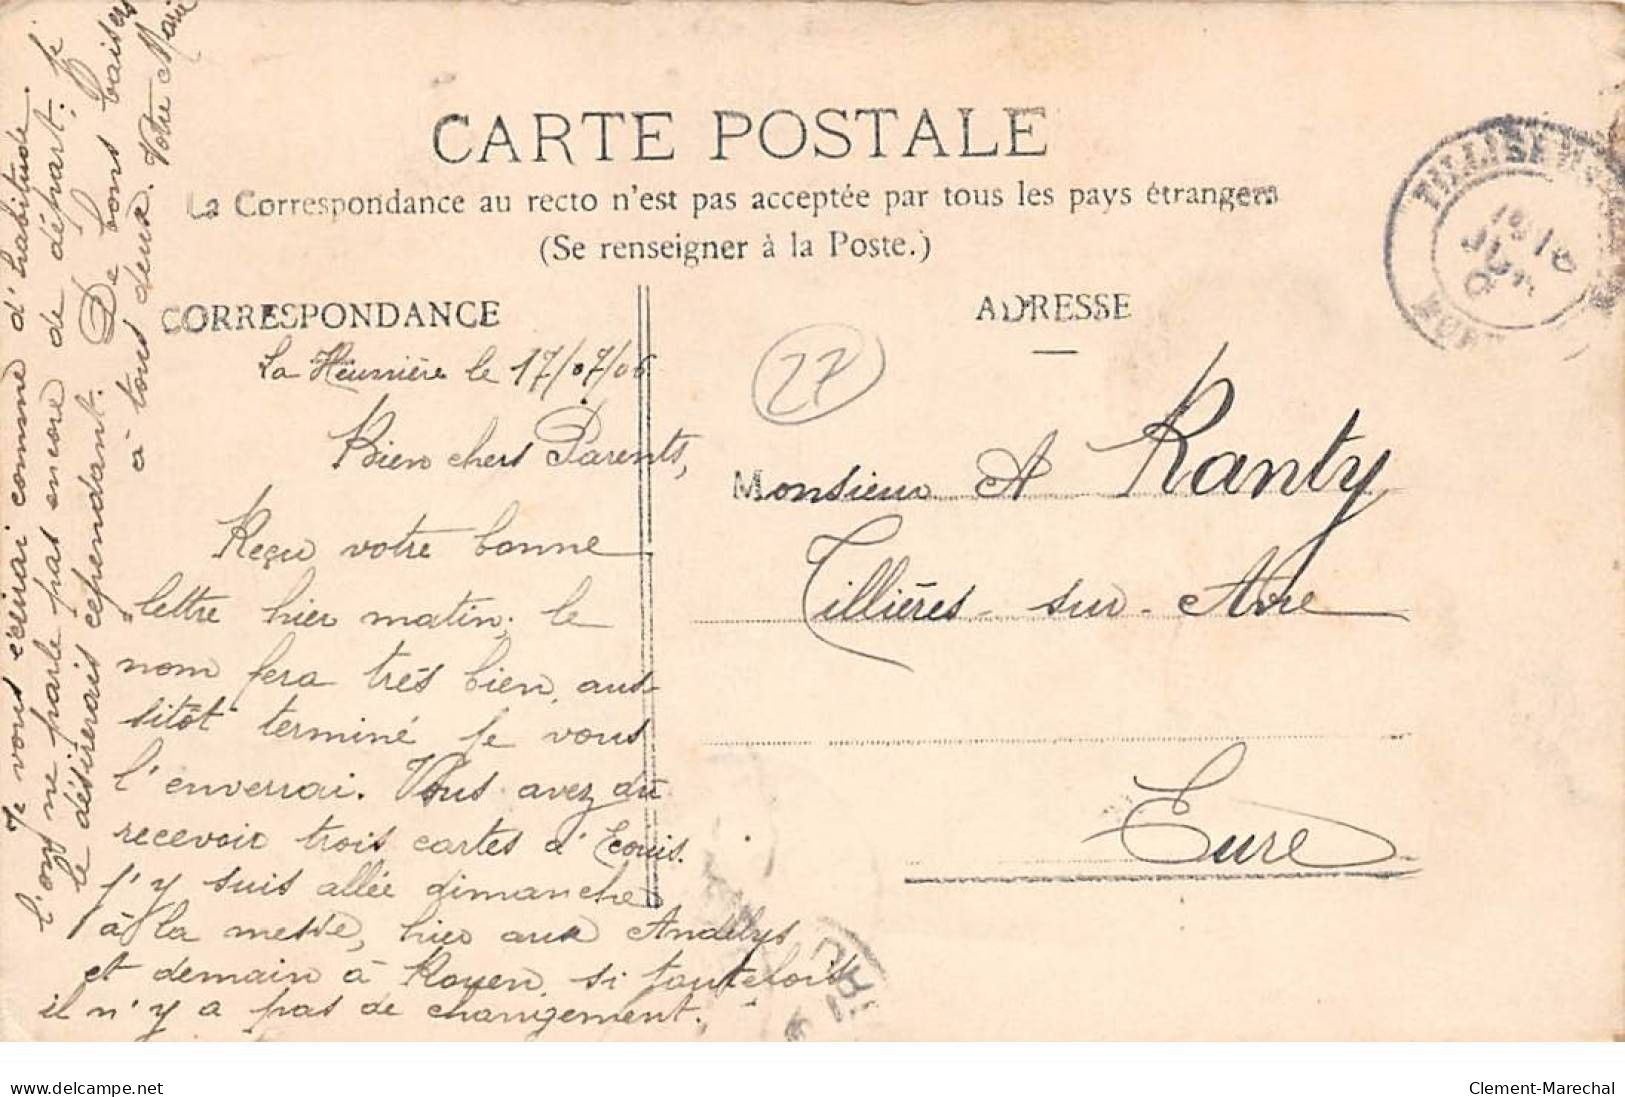 CARTE POSTALE
La Correspondance au recto n'est pas acceptée par tous les pays étrangers
(Se renseigner à la Poste.)
CORRESPONDANCE
La Heunière le 17/07/06
Bien chers Parents,
Reçu votre bonne
lettre hier matin, le
nom fera très bien, aus-
sitôt terminé je vous
l'enverrai. Vous avez dû
recevoir trois cartes d'Ecouis.
J'y suis allée dimanche
à la messe, hier aux Andelys
et demain à Rouen, si toutefois
il n'y a pas de changement.
Je vous écrirai comme d'habitude.
l'on ne parle pas encore de départ. Je
le désirerais cependant. De bons baisers
à tous deux. Votre Marie
ADRESSE
27
Monsieur A Ranty
Tillières-sur-Avre
Eure
TILLIERES
delcampe.net
Clement-Marechal